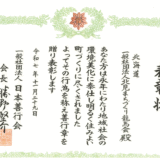 表彰状
北海道
一般社団法人北見まつり龍兵会殿
あなた方は永年にわたり地域社会の
環境美化に奉仕し明るく住みよい
町づくりに尽くされました
よってその行為を称え善行章を
贈り表彰します
令和七年十一月二十九日
一般社団法人日本善行会
会長